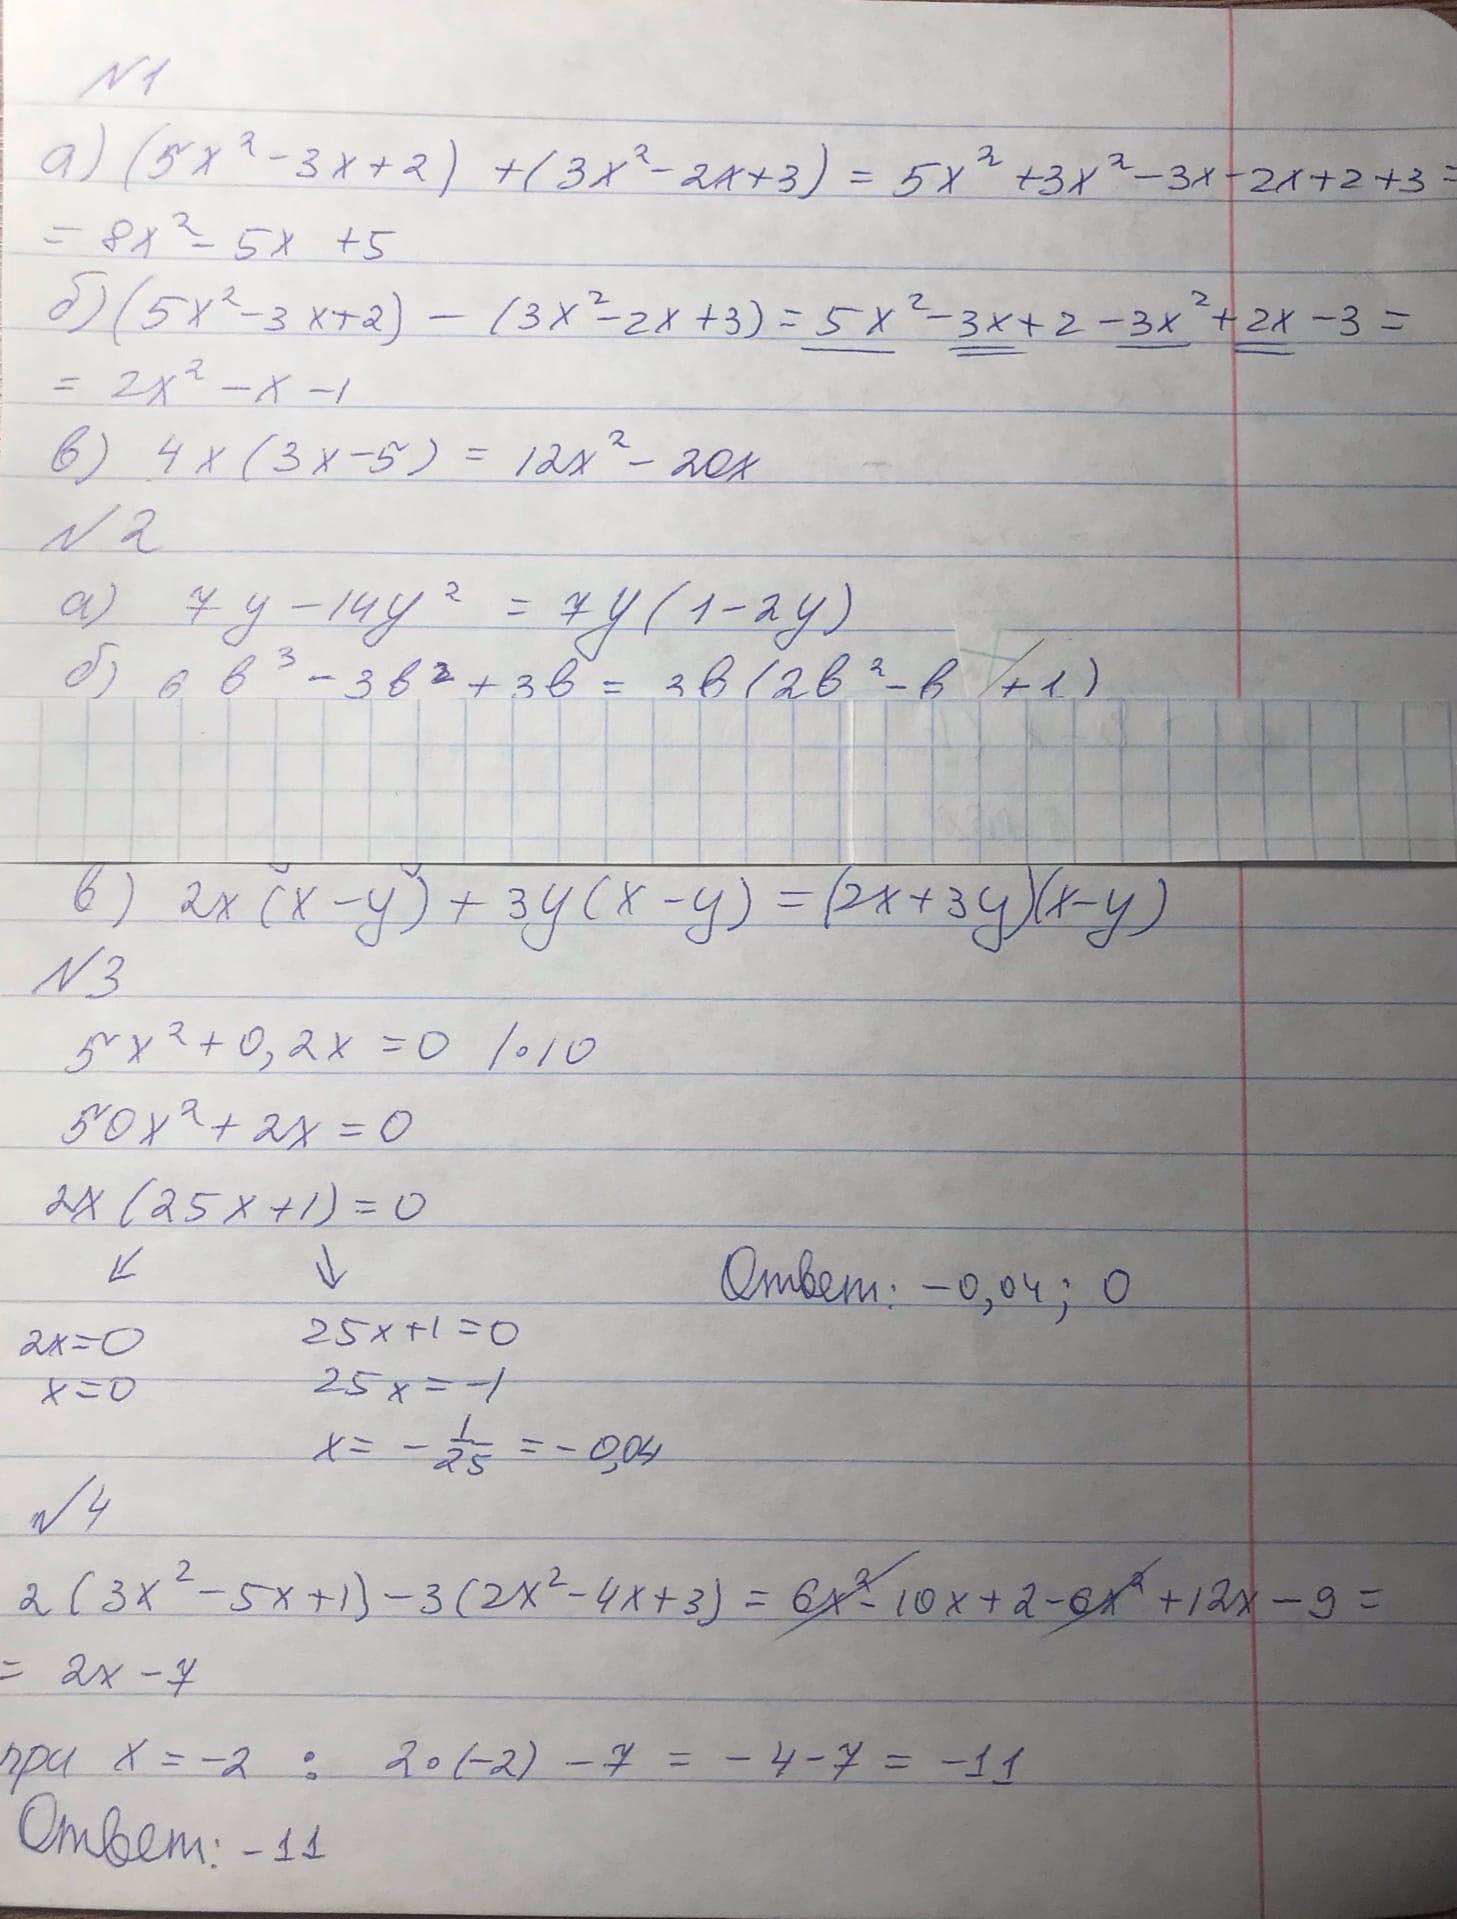 №1
а) (5x² - 3x + 2) + (3x² - 2x + 3) = 5x² + 3x² - 3x - 2x + 2 + 3 =
= 8x² - 5x + 5
б) (5x² - 3x + 2) - (3x² - 2x + 3) = 5x² - 3x + 2 - 3x² + 2x - 3 =
= 2x² - x - 1
в) 4x (3x - 5) = 12x² - 20x
№2
а) 7y - 14y² = 7y (1 - 2y)
б) 6b³ - 3b² + 3b = 3b (2b² - b + 1)
в) 2x (x - y) + 3y (x - y) = (2x + 3y)(x - y)
№3
5x² + 0,2x = 0 / · 10
50x² + 2x = 0
2x (25x + 1) = 0
↙ ↘
Ответ: -0,04; 0
2x = 0 25x + 1 = 0
x = 0 25x = -1
x = - 1/25 = -0,04
№4
2 (3x² - 5x + 1) - 3 (2x² - 4x + 3) = 6x² - 10x + 2 - 6x² + 12x - 9 =
= 2x - 7
при x = -2 : 2 · (-2) - 7 = -4 - 7 = -11
Ответ: -11